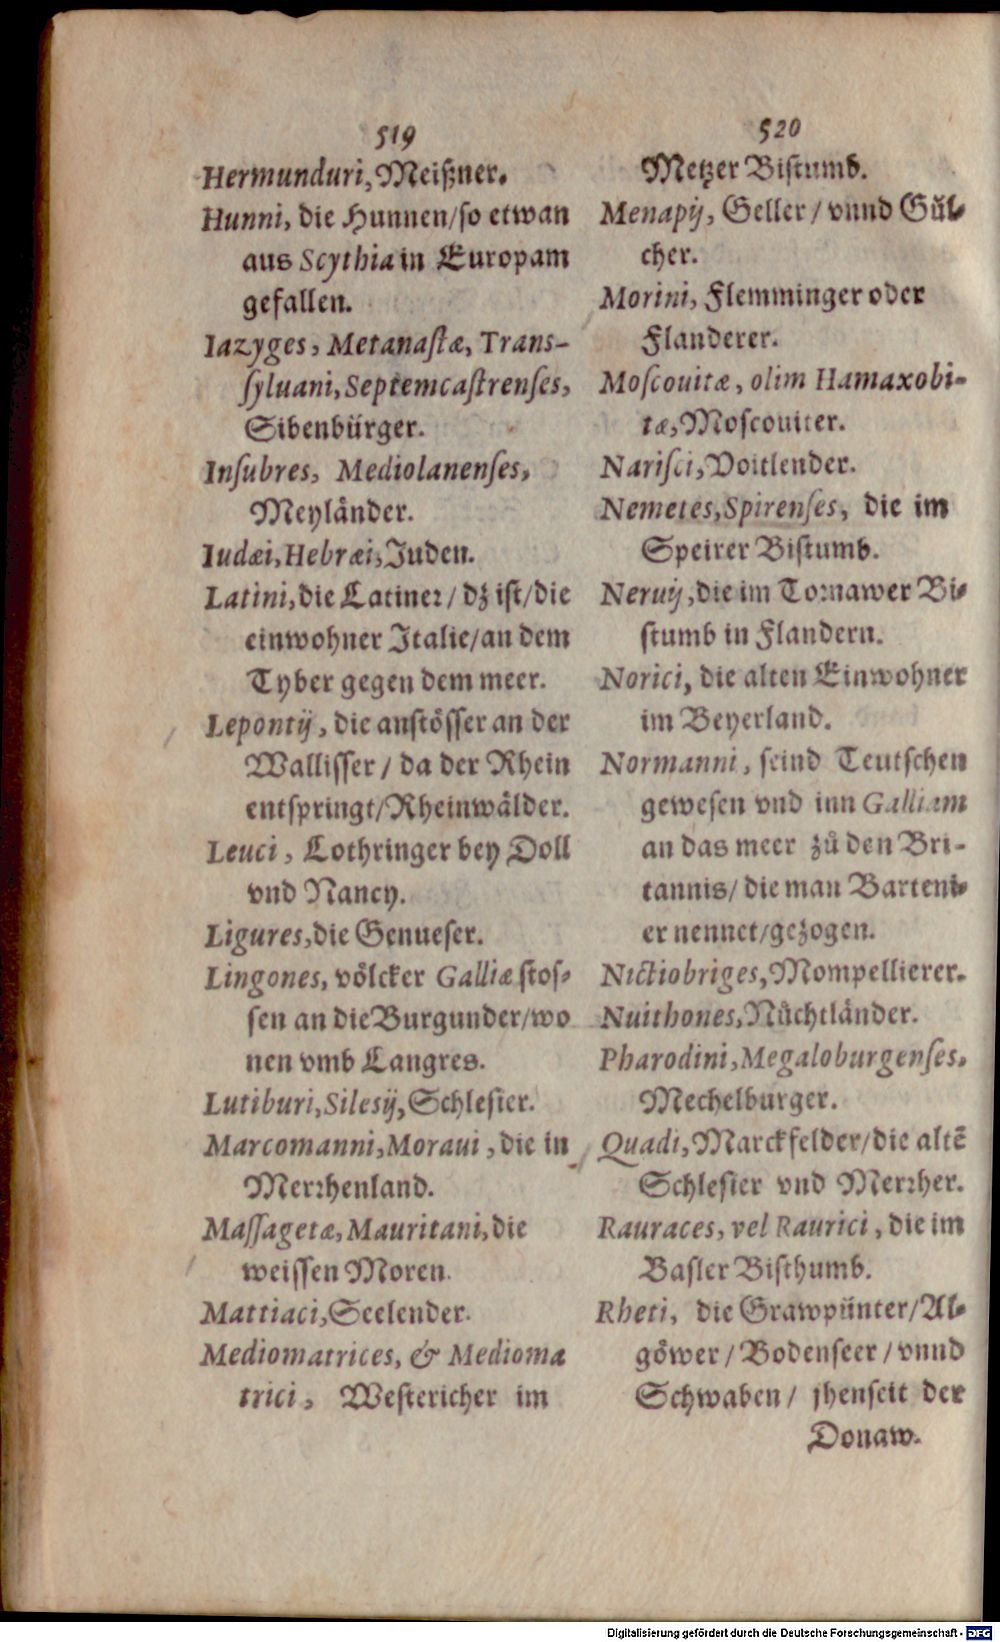 519
Hermunduri, Meißner.
Hunni, die Hunnen/so etwan
aus Scythia in Europam
gefallen.
Iazyges, Metanastæ, Trans-
syluani, Septemcastrenses,
Sibenbürger.
Insubres, Mediolanenses,
Meyländer.
Iudæi, Hebræi, Juden.
Latini, die Latiner/dz ist/die
einwohner Italie/an dem
Tyber gegen dem meer.
Lepontij, die anstösser an der
Wallisser/da der Rhein
entspringt/Rheinwälder.
Leuci, Lothringer bey Doll
vnd Nancy.
Ligures, die Genueser.
Lingones, völcker Galliæ stos-
sen an die Burgunder/wo
nen vmb Langres.
Lutiburi, Silesij, Schlesier.
Marcomanni, Moraui, die in
Merrhenland.
Massagetæ, Mauritani, die
weissen Moren.
Mattiaci, Seelender.
Mediomatrices, & Medioma
trici, Westericher im
520
Metzer Bistumb.
Menapij, Geller/vnnd Gül-
cher.
Morini, Flemminger oder
Flanderer.
Moscouitæ, olim Hamaxobi-
tæ, Moscouiter.
Narisci, Voitlender.
Nemetes, Spirenses, die im
Speirer Bistumb.
Neruij, die im Tornawer Bi-
stumb in Flandern.
Norici, die alten Einwohner
im Beyerland.
Normanni, seind Teutschen
gewesen vnd inn Galliam
an das meer zů den Bri-
tannis/die man Barteni-
er nennet/gezogen.
Nictiobriges, Mompellierer.
Nuithones, Nüchtländer.
Pharodini, Megaloburgenses,
Mechelburger.
Quadi, Marckfelder/die altẽ
Schlesier vnd Merrher.
Rauraces, vel Raurici, die im
Basler Bisthumb.
Rheti, die Grawpünter/Al-
göwer/Bodenseer/vnnd
Schwaben/jhenseit der
Donaw.
Digitalisierung gefördert durch die Deutsche Forschungsgemeinschaft - DFG